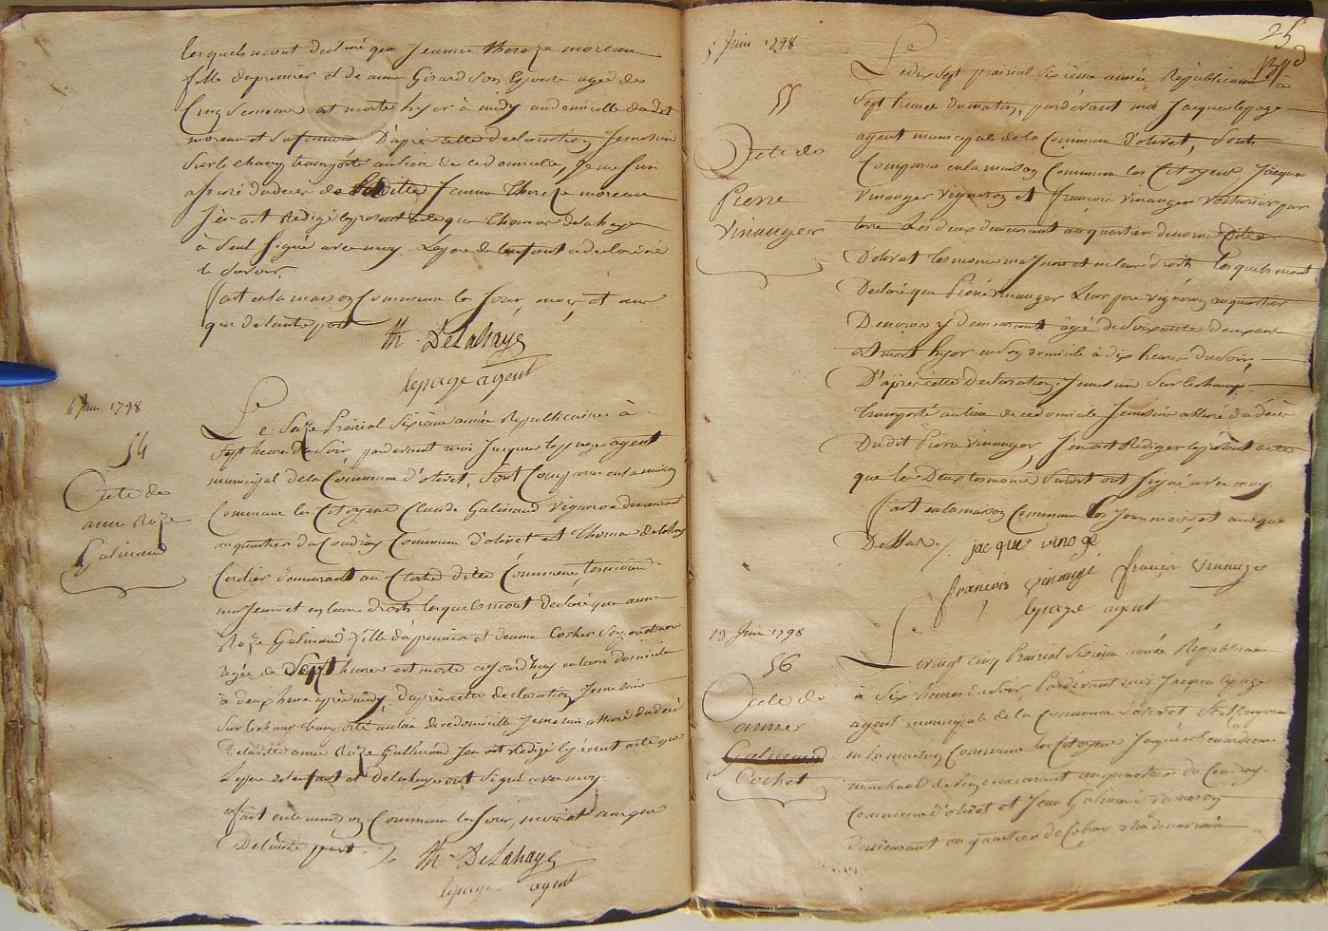 lesquels mont declaré que Jeanne thereze moreau
fille du premier et de anne Girard son Epouse agée de
Cinq semaine est morte hyer à midy au domicille dudit
moreau et sa femme D'apré cette declaration Je me suis
sur le champ transporté au lieu de ce domicille, Je me suis
assuré du decer de laditte Jeanne thereze moreau
J'en ait Redigé le present acte que thomas delahaye
à seul signé avec moy Le pere de lenfant a declaré ne
le savoir
fait en la maison Commune les Jour, mois, et an
que de lautre part
th. DeLahaye
lepage agent
6 Juin 1798
54
Acte de
anne Roze
Galineau
Le Seize Prairial Sixième année Republicaine à
sept heure du soir, pardevant moi Jacque lepage agent
municipal de la Commune d'olivet, sont Comparu en la maison
Commune les Citoyens Claude Galineau Vigneron demeurant
au quartier du Coudray Commune d'olivet et thomas delahaye
Cordier demeurant au dite Commune, temoins
majeurs et en leurs droits lesquels mont declaré que anne
Roze Galineau fille du premier et de anne Cochet son
agée de Sept heures est morte aujourd'huy en leur domicille
à deux heure après midy, d'apré cette declaration Je me suis
sur le champ transporté au lieu de ce domicille Je me suis assuré du decé
de laditte anne Roze Galineau Jen ait Redigé le present acte que
le pere de lenfant et delahaye ont signé avec moy.
fait en la maison Commune les Jour, mois et an que
De lautre part.
th. DeLahaye
lepage agent
25
5 Juin 1798
55
Acte de
Pierre
Vinauger
Le dix Sept prairial Sixieme année Republicaine à
Sept heures du matin, pardevant moi Jacque lepage
agent municipal de la Commune D'olivet, Sont
Comparu en la maison Commune les Citoyens Jacque
Vinauger Vigneron et françois Vinauger Voiturier par
terre Les deux demeurant au quartier
D'olivet temoins majeurs et en leurs droits lesquels mont
Declaré que Pierre Vinauger Leur pere Vigneron au quartier
y demeurant âgé de Soixante deux ans
est mort hyer en son domicile à dix heures du soir,
D'après cette declaration Je me suis Sur le champ
transporté au lieu de ce domicile Je me suis assuré du decer
Dudit Pierre Vinauger, J'en ait Rediger le present acte
que les Deux temoins Susdit ont signé avec moy
fait en la maison Commune les Jour mois et an que
Dessus
jacque vinoge
françois vinauge françoi Vinauge
lepage agent
13 Juin 1798
56
Acte de
anne
Galineau
Cochet
Le vingt cinq Prairial Sixieme année Républicaine
à Six heures du soir Pardevant moi Jacque lepage
agent municipal de la Commune d'olivet Sont Comparu
en la maison Commune les Citoyens Jacque
demeurant au quartier du Coudray
Commune d'olivet et Jean Galineau vigneron
demeurant au quartier de